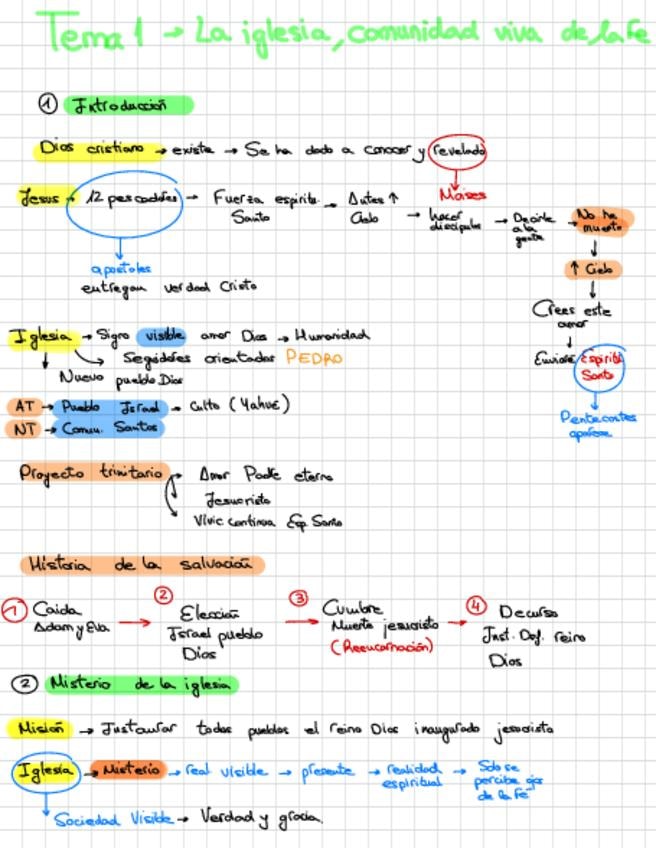 Tema 1 → La iglesia, comunidad viva de la Fe
① Introducción
Dios cristiano → existe → Se ha dado a conocer y revelado
Moises
Jesus → 12 pescadores → Fuerza espiritu Santo → Antes ↑ Cielo → hacer discipulos → Decirle a la gente → No ha muerto
apostoles
entregan verdad Cristo
↑ Cielo
Crees este amor
Enviare Espiritu Santo
Pentecostes aparece
Iglesia → Signo visible amor Dios → Humanidad
→ Seguidores orientados PEDRO
Nuevo pueblo Dios
AT → Pueblo Israel → Culto (Yahvé)
NT → Comun. Santos
Proyecto trinitario → Amor Padre eterno
Jesucristo
Vivic continua Esp. Santo
Historia de la salvación
① Caida Adam y Eva → ② Elección Israel pueblo Dios → ③ Cumbre Muerte jesucristo (Reencarnación) → ④ Decurso Inst. Def. reino Dios
② Misterio de la iglesia
Misión → Instaurar todos pueblos el reino Dios inaugurado jesucristo
Iglesia → Misterio → real visible → presente → realidad espiritual → Solo se percibe ojos de la Fe
Sociedad Visible → Verdad y gracia.